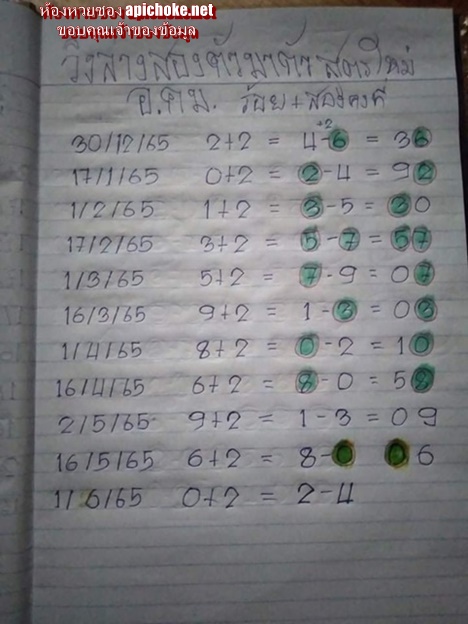 ห้องหวยซอง apichoke.net
ขอบคุณเจ้าของข้อมูล
วิ่งล่างสองตัวมาตัว สูตรใหม่
อ.คม. ร้อย+สองคงที่
+2
30/12/65 2+2 = 4-6 = 36
17/1/65 0+2 = 2-4 = 92
1/2/65 1+2 = 3-5 = 30
17/2/65 3+2 = 5-7 = 57
1/3/65 5+2 = 7-9 = 07
16/3/65 9+2 = 1-3 = 03
1/4/65 8+2 = 0-2 = 10
16/4/65 6+2 = 8-0 = 58
2/5/65 9+2 = 1-3 = 09
16/5/65 6+2 = 8-0 06
1/6/65 0+2 = 2-4